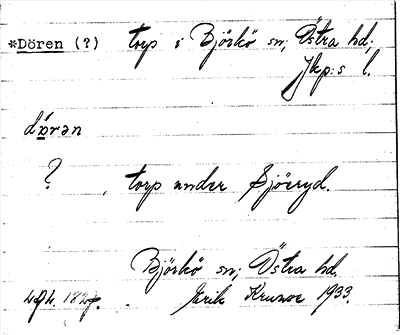 *Dören (?) torp i Björkö sn; Östra hd;
Jkp:s l.
dörən
? , torp under Sjöeryd.
Björkö sn; Östra hd.
Erik 1933.